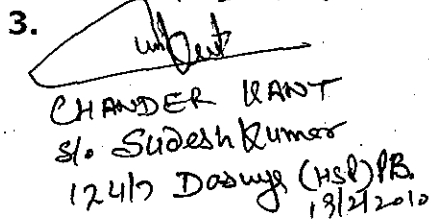 3.
CHANDER KANT
S/o Sudesh Kumar
124/7 Dasuya (HSP) PB.
13/2/2010